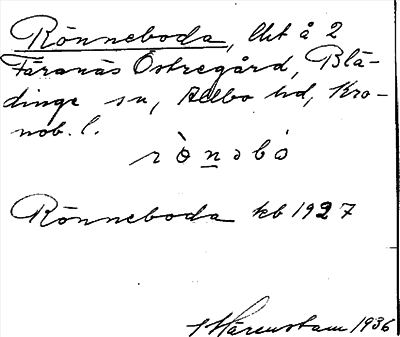 Rönneboda, lht å 2
Färanäs Östregård, Blä-
dinge sn, Allbo hd, Kro-
nob. l.
rò̀nəbó
Rönneboda kb 1927
Härenstam 1936